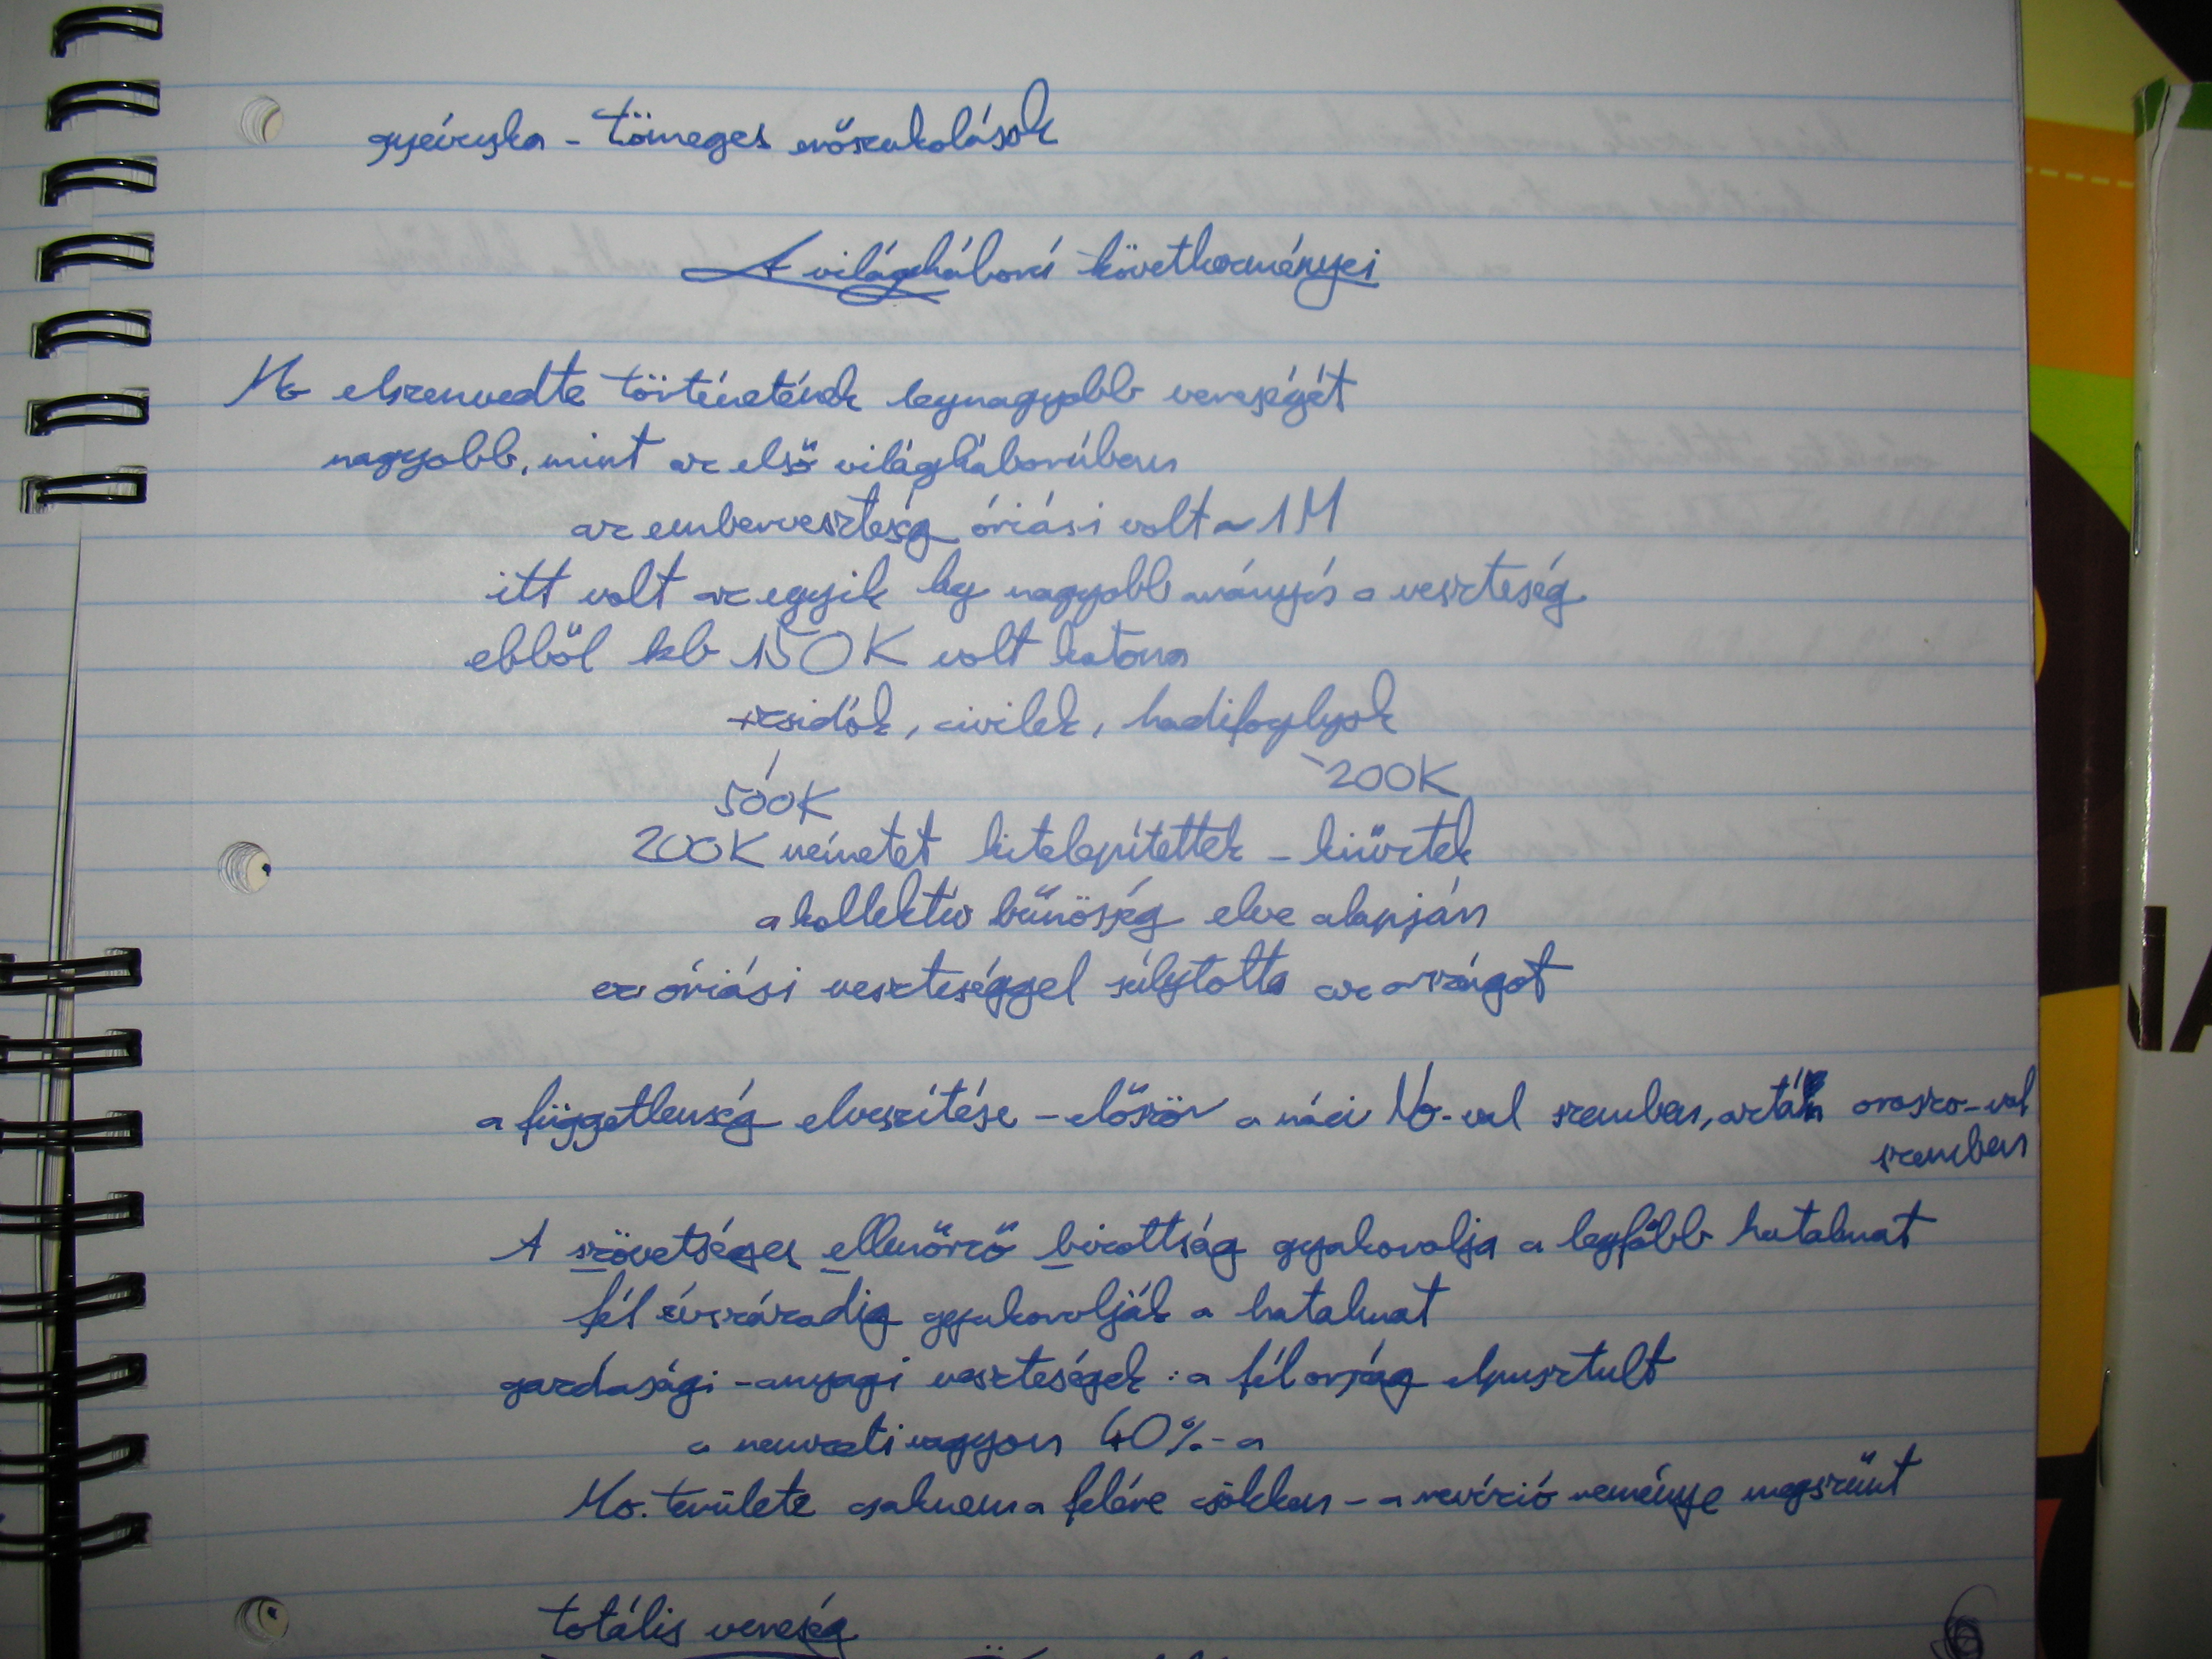 gyévuska - tömeges erőszakolások
A világháború következményei
Mo elszenvedte történetének legnagyobb vereségét
nagyobb, mint az első világháborúban
az emberveszteség óriási volt ~ 1M
itt volt az egyik leg nagyobb arányú a veszteség
ebből kb 150K volt katona
+zsidók, civilek, hadifoglyok
500K 200K
200K németet kitelepítettek - kiűztek
a kollektív bűnösség elve alapján
ez óriási veszteséggel súlytotta az országot
a függetlenség elveszítése - először a náci No-val szemben, aztán oroszo-val
szemben
A szövetséges ellenőrző bizottság gyakorolja a legfőbb hatalmat
fél évszázadig gyakorolják a hatalmat
gazdasági - anyagi veszteségek : a fél ország elpusztult
a nemzeti vagyon 40%-a
Mo. területe csaknem a felére csökken - a revízió reménye megszűnt
totális vereség